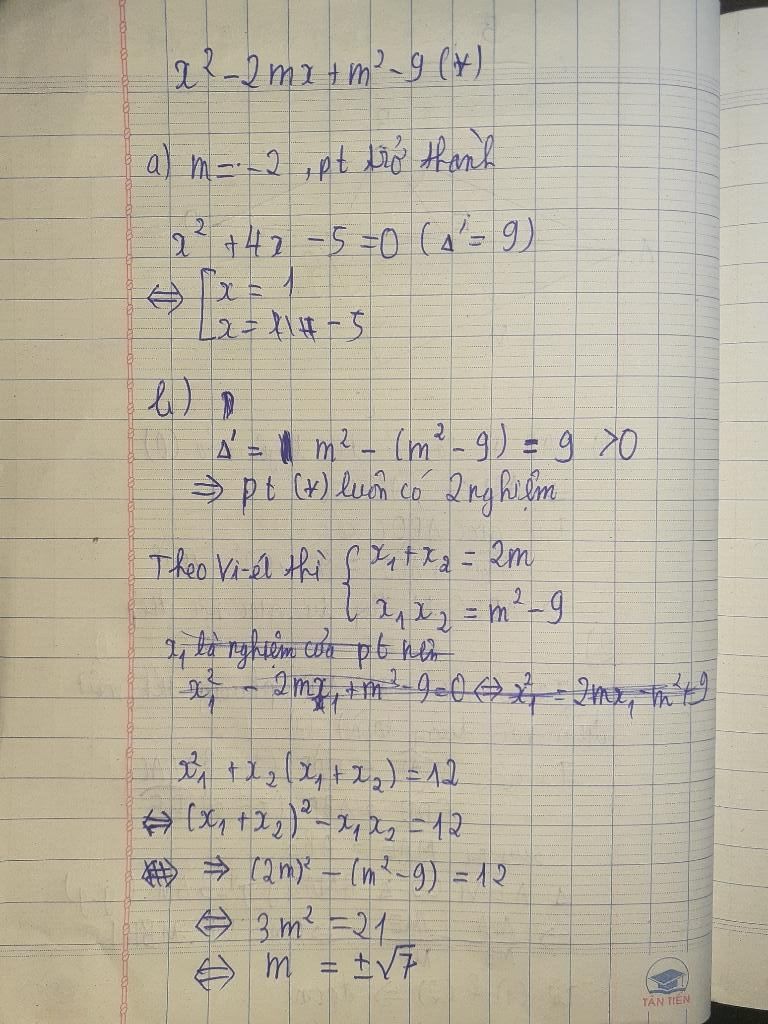 x² - 2mx + m² - 9 (*)
a) m = -2 , pt trở thành
x² + 4x - 5 = 0 (Δ' = 9)
⇔ [ x = 1
x = -5
b)
Δ' = m² - (m² - 9) = 9 > 0
⇒ pt (*) luôn có 2 nghiệm
Theo Vi-ét thì { x₁ + x₂ = 2m
x₁ x₂ = m² - 9
x₁ là nghiệm của pt nên
x₁² - 2mx₁ + m² - 9 = 0 ⇔ x₁² = 2mx₁ - m² + 9
x₁² + x₂ (x₁ + x₂) = 12
⇔ (x₁ + x₂)² - x₁ x₂ = 12
⇒ (2m)² - (m² - 9) = 12
⇔ 3m² = 21
⇔ m = ±√7
TÂN TIẾN